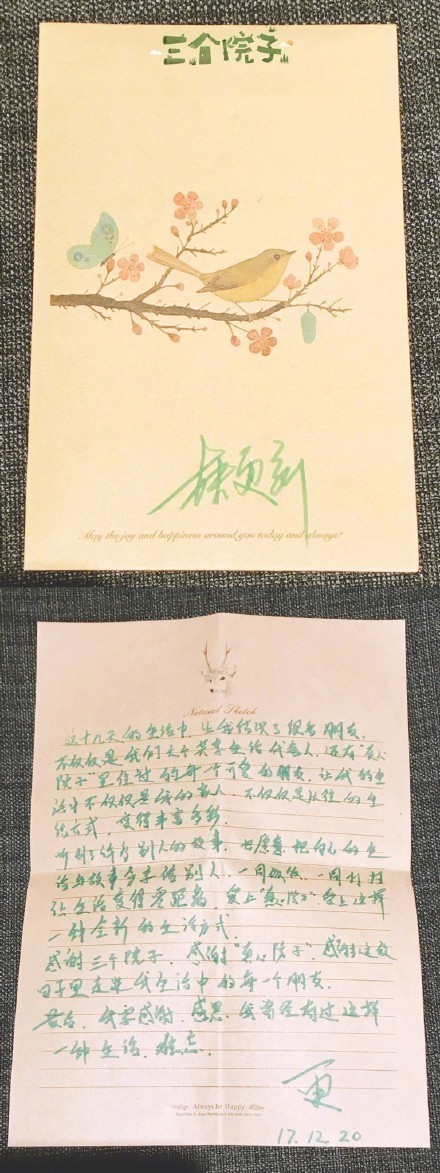 三个院子
May the joy and happiness around you today and always!
Natural Sketch
这十九天的生活中，让我结识了很多朋友。
不仅仅是我们六个共享生活代言人，还有"真心
院子"里住过的每一个可爱的朋友，让我的生
活中不仅仅是我的家人，不仅仅是从往的生
活方式，变得丰富多彩。
听到了许多别人的故事，也愿意把自己的生
活与故事分享给别人，一同做饭，一同打扫
让生活变得零距离，爱上"真心院子"，爱上这样
一种全新的生活方式。
感谢三个院子，感谢"真心院子"，感谢这段
日子里走进我生活中的每一个朋友。
最后，我要感谢，感恩，我曾经有过这样
一种生活，难忘。
Always be Happy
17.12.20